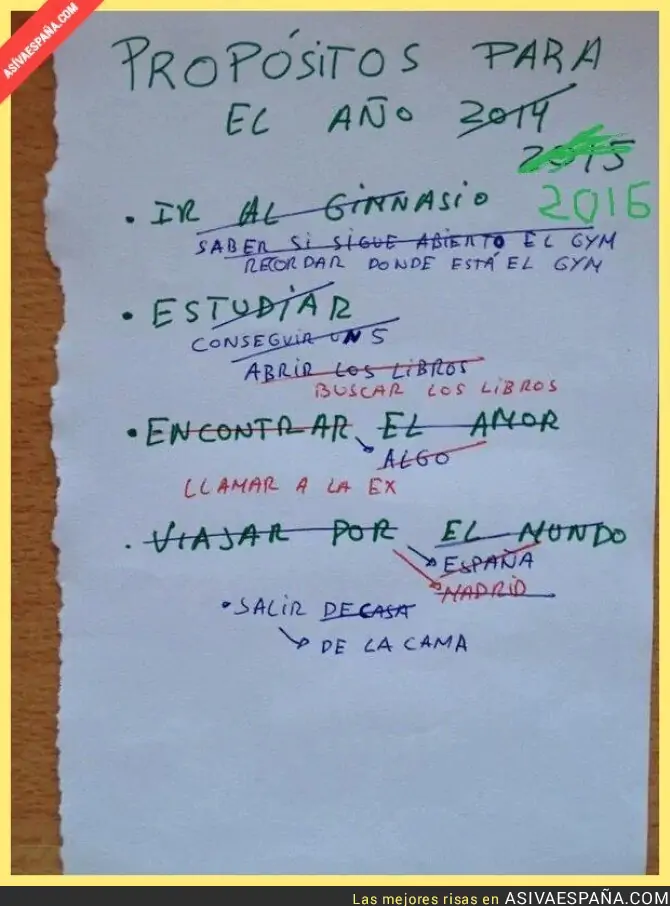 ASIVAESPAÑA.COM
PROPÓSITOS PARA
EL AÑO 2014
2015
2016
• IR AL GIMNASIO
SABER SI SIGUE ABIERTO EL GYM
RECORDAR DONDE ESTÁ EL GYM
• ESTUDIAR
CONSEGUIR UN 5
ABRIR LOS LIBROS
BUSCAR LOS LIBROS
• ENCONTRAR EL AMOR
ALGO
LLAMAR A LA EX
. VIAJAR POR EL MUNDO
ESPAÑA
MADRID
• SALIR DE CASA
DE LA CAMA
Las mejores risas en ASIVAESPAÑA.COM